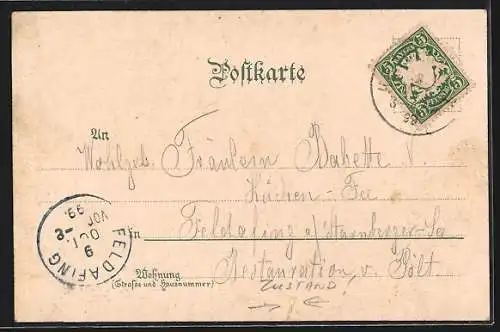 Postkarte
5 BAYERN 5
99
An
Wohlgeb. Fräulein Babette V.
Küchen-Fee
in Feldafing a/Starnberger-See
Wohnung Restauration v. Pölt.
(Strasse und Hausnummer)
ZUSTAND!
FELDAFING
9 OCT
VOR
99